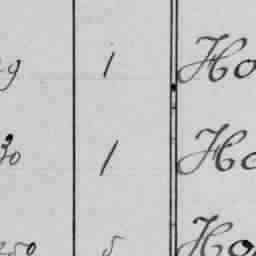 9 1 Ho
30 1 Ho
250 5 Ho